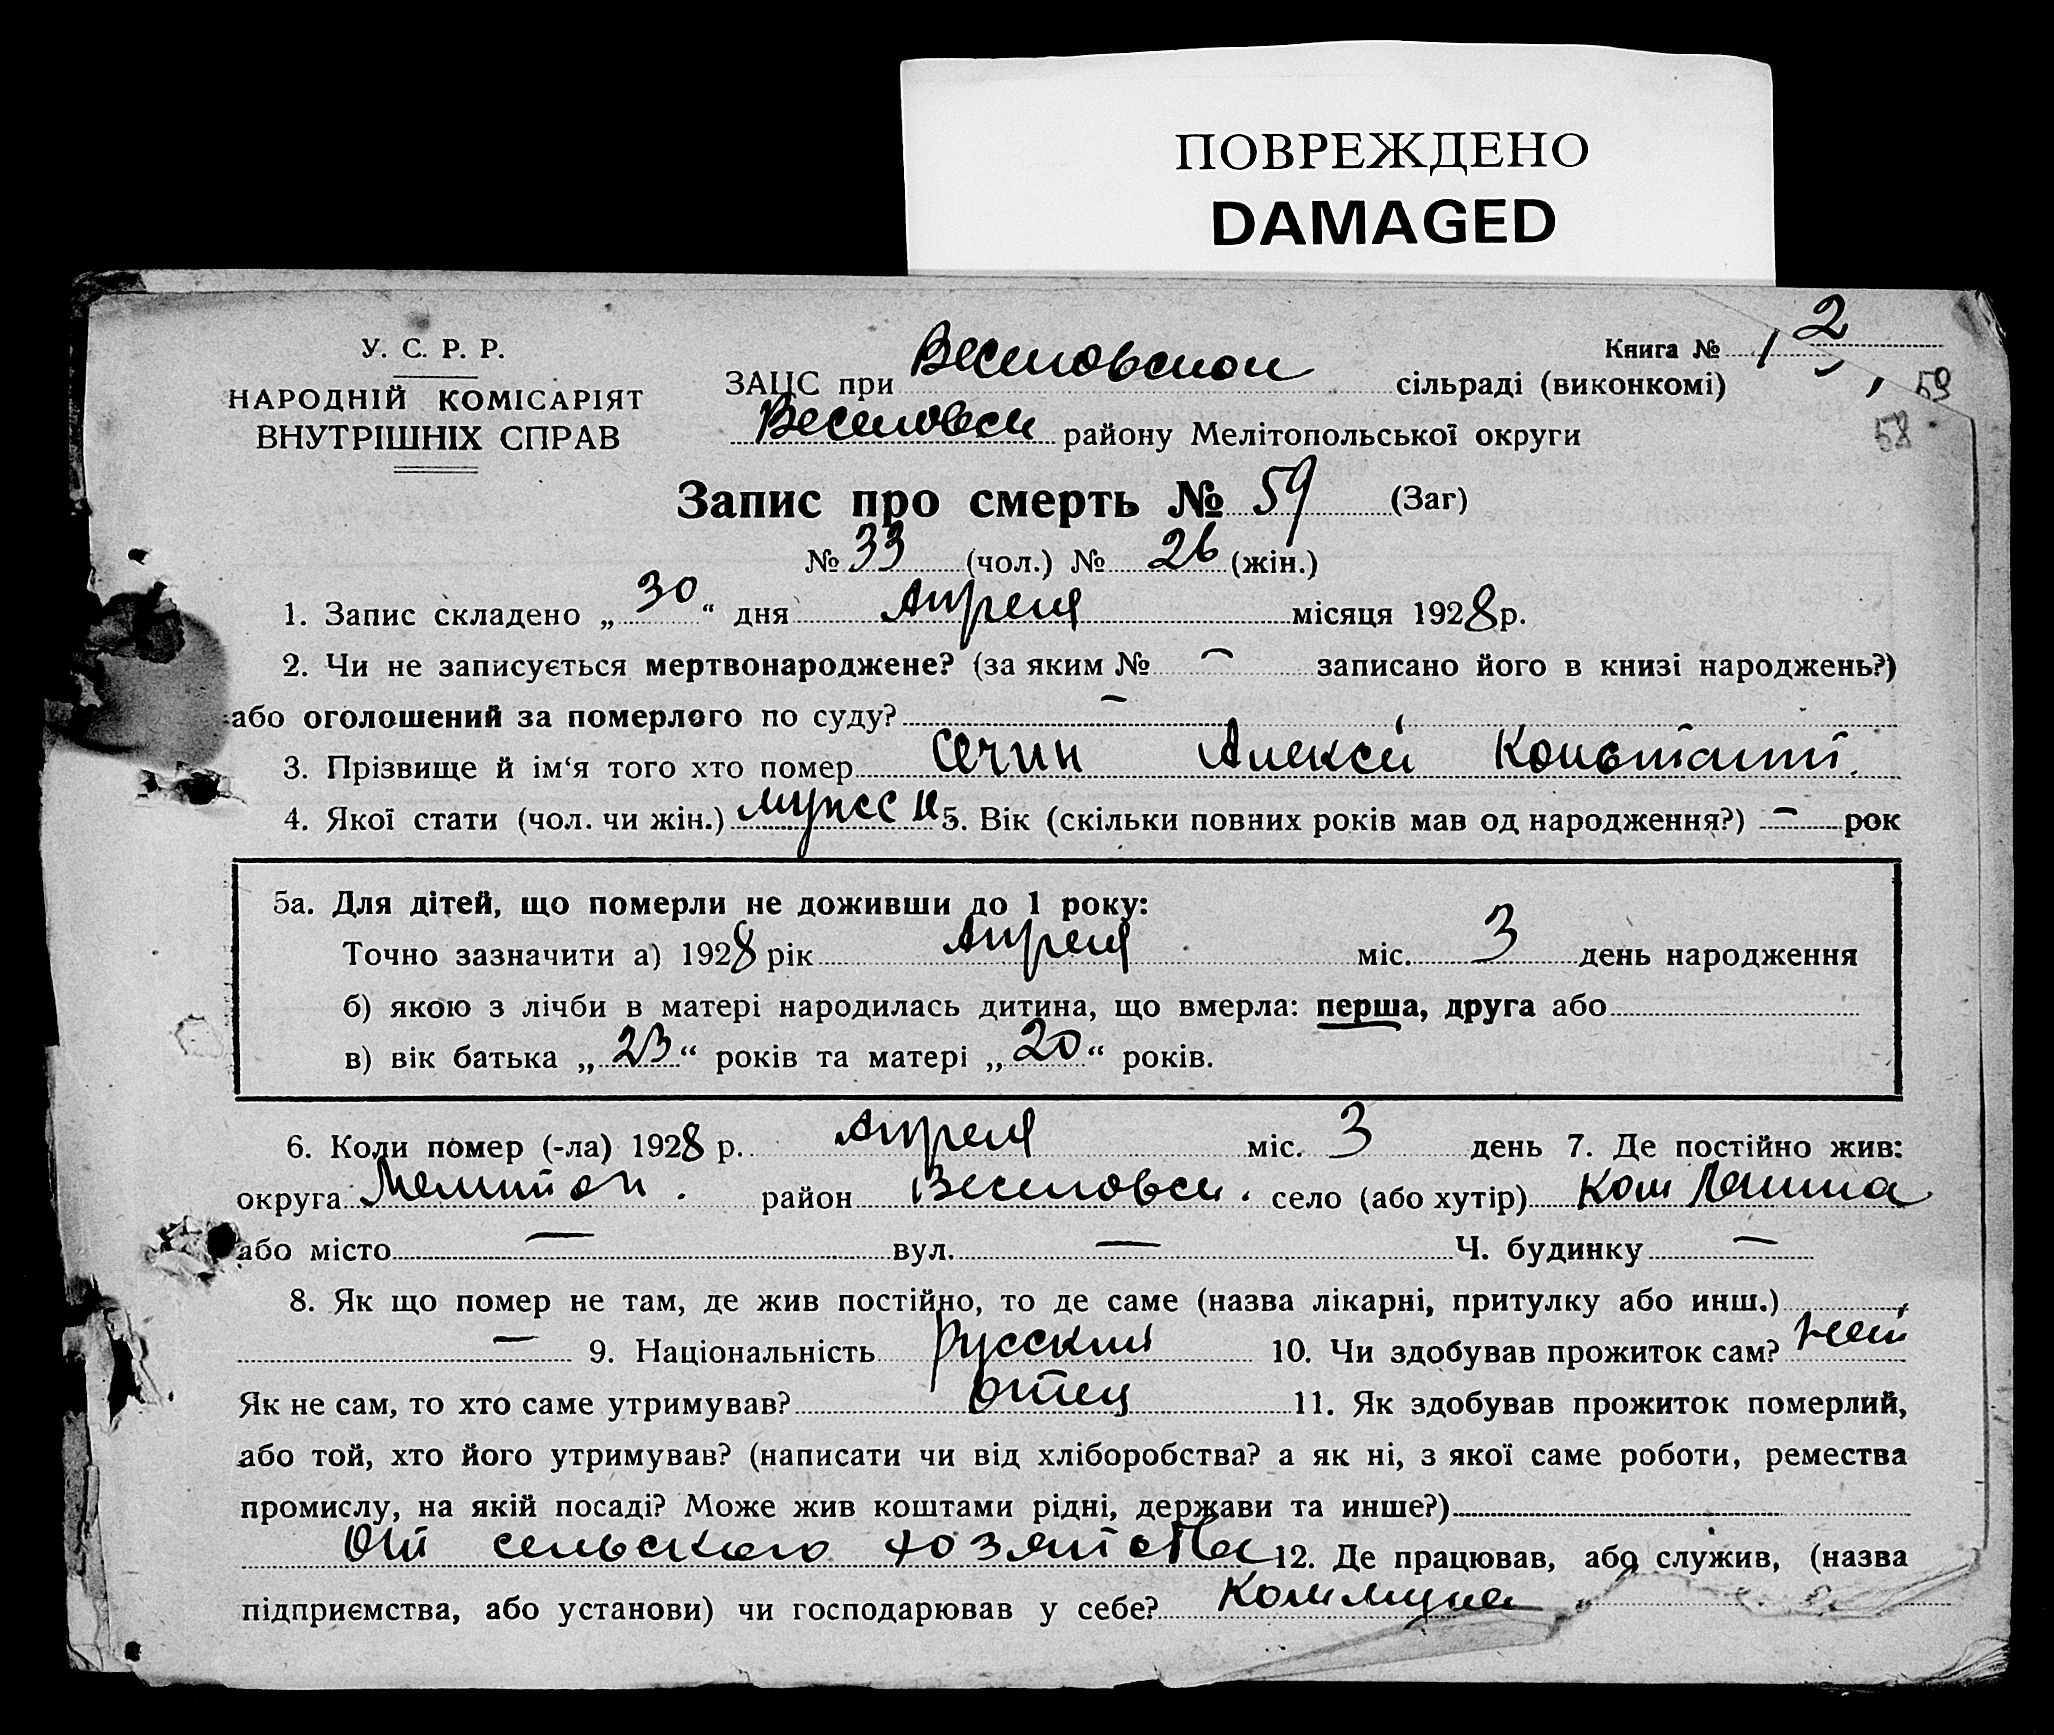 ПОВРЕЖДЕНО
DAMAGED
У. С. Р. Р.
НАРОДНІЙ КОМІСАРІЯТ
ВНУТРІШНІХ СПРАВ
Книга № 1 2
59
58
ЗАЦС при Веселовском сільраді (виконкомі)
Веселовск районy Мелітопольської округи
Запис про смерть № 59 (Заг)
№ 33 (чол.) № 26 (жін.)
1. Запис складено „30“ дня Апреля місяця 1928 р.
2. Чи не записується мертвонароджене? (за яким № — записано його в книзі народжень?)
або оголошений за померлого по суду? —
3. Прізвище й ім‘я того хто помер Сечин Алексей Константи.
4. Якої стати (чол. чи жін.) мужск 5. Вік (скільки повних років мав од народження?) — рок
5а. Для дітей, що померли не доживши до 1 року:
Точно зазначити а) 1928 рік Апреля міс. 3 день народження
б) якою з лічби в матері народилась дитина, що вмерла: перша, друга або
в) вік батька „23“ років та матері „20“ років.
6. Коли помер (-ла) 1928 р. Апреля міс. 3 день 7. Де постійно жив:
округа Мелитоп. район Веселовск. село (або хутір) Ком Ленина
або місто — вул. — Ч. будинку —
8. Як що помер не там, де жив постійно, то де саме (назва лікарні, притулку або инш.)
— 9. Національність русский 10. Чи здобував прожиток сам? Нет
Як не сам, то хто саме утримував? отец 11. Як здобував прожиток померлий,
або той, хто його утримував? (написати чи від хліборобства? а як ні, з якої саме роботи, ремества
промислу, на якій посаді? Може жив коштами рідні, держави та инше?)
От сельского хозяйства 12. Де працював, або служив, (назва
підприємства, або установи) чи господарював у себе? Коммуна